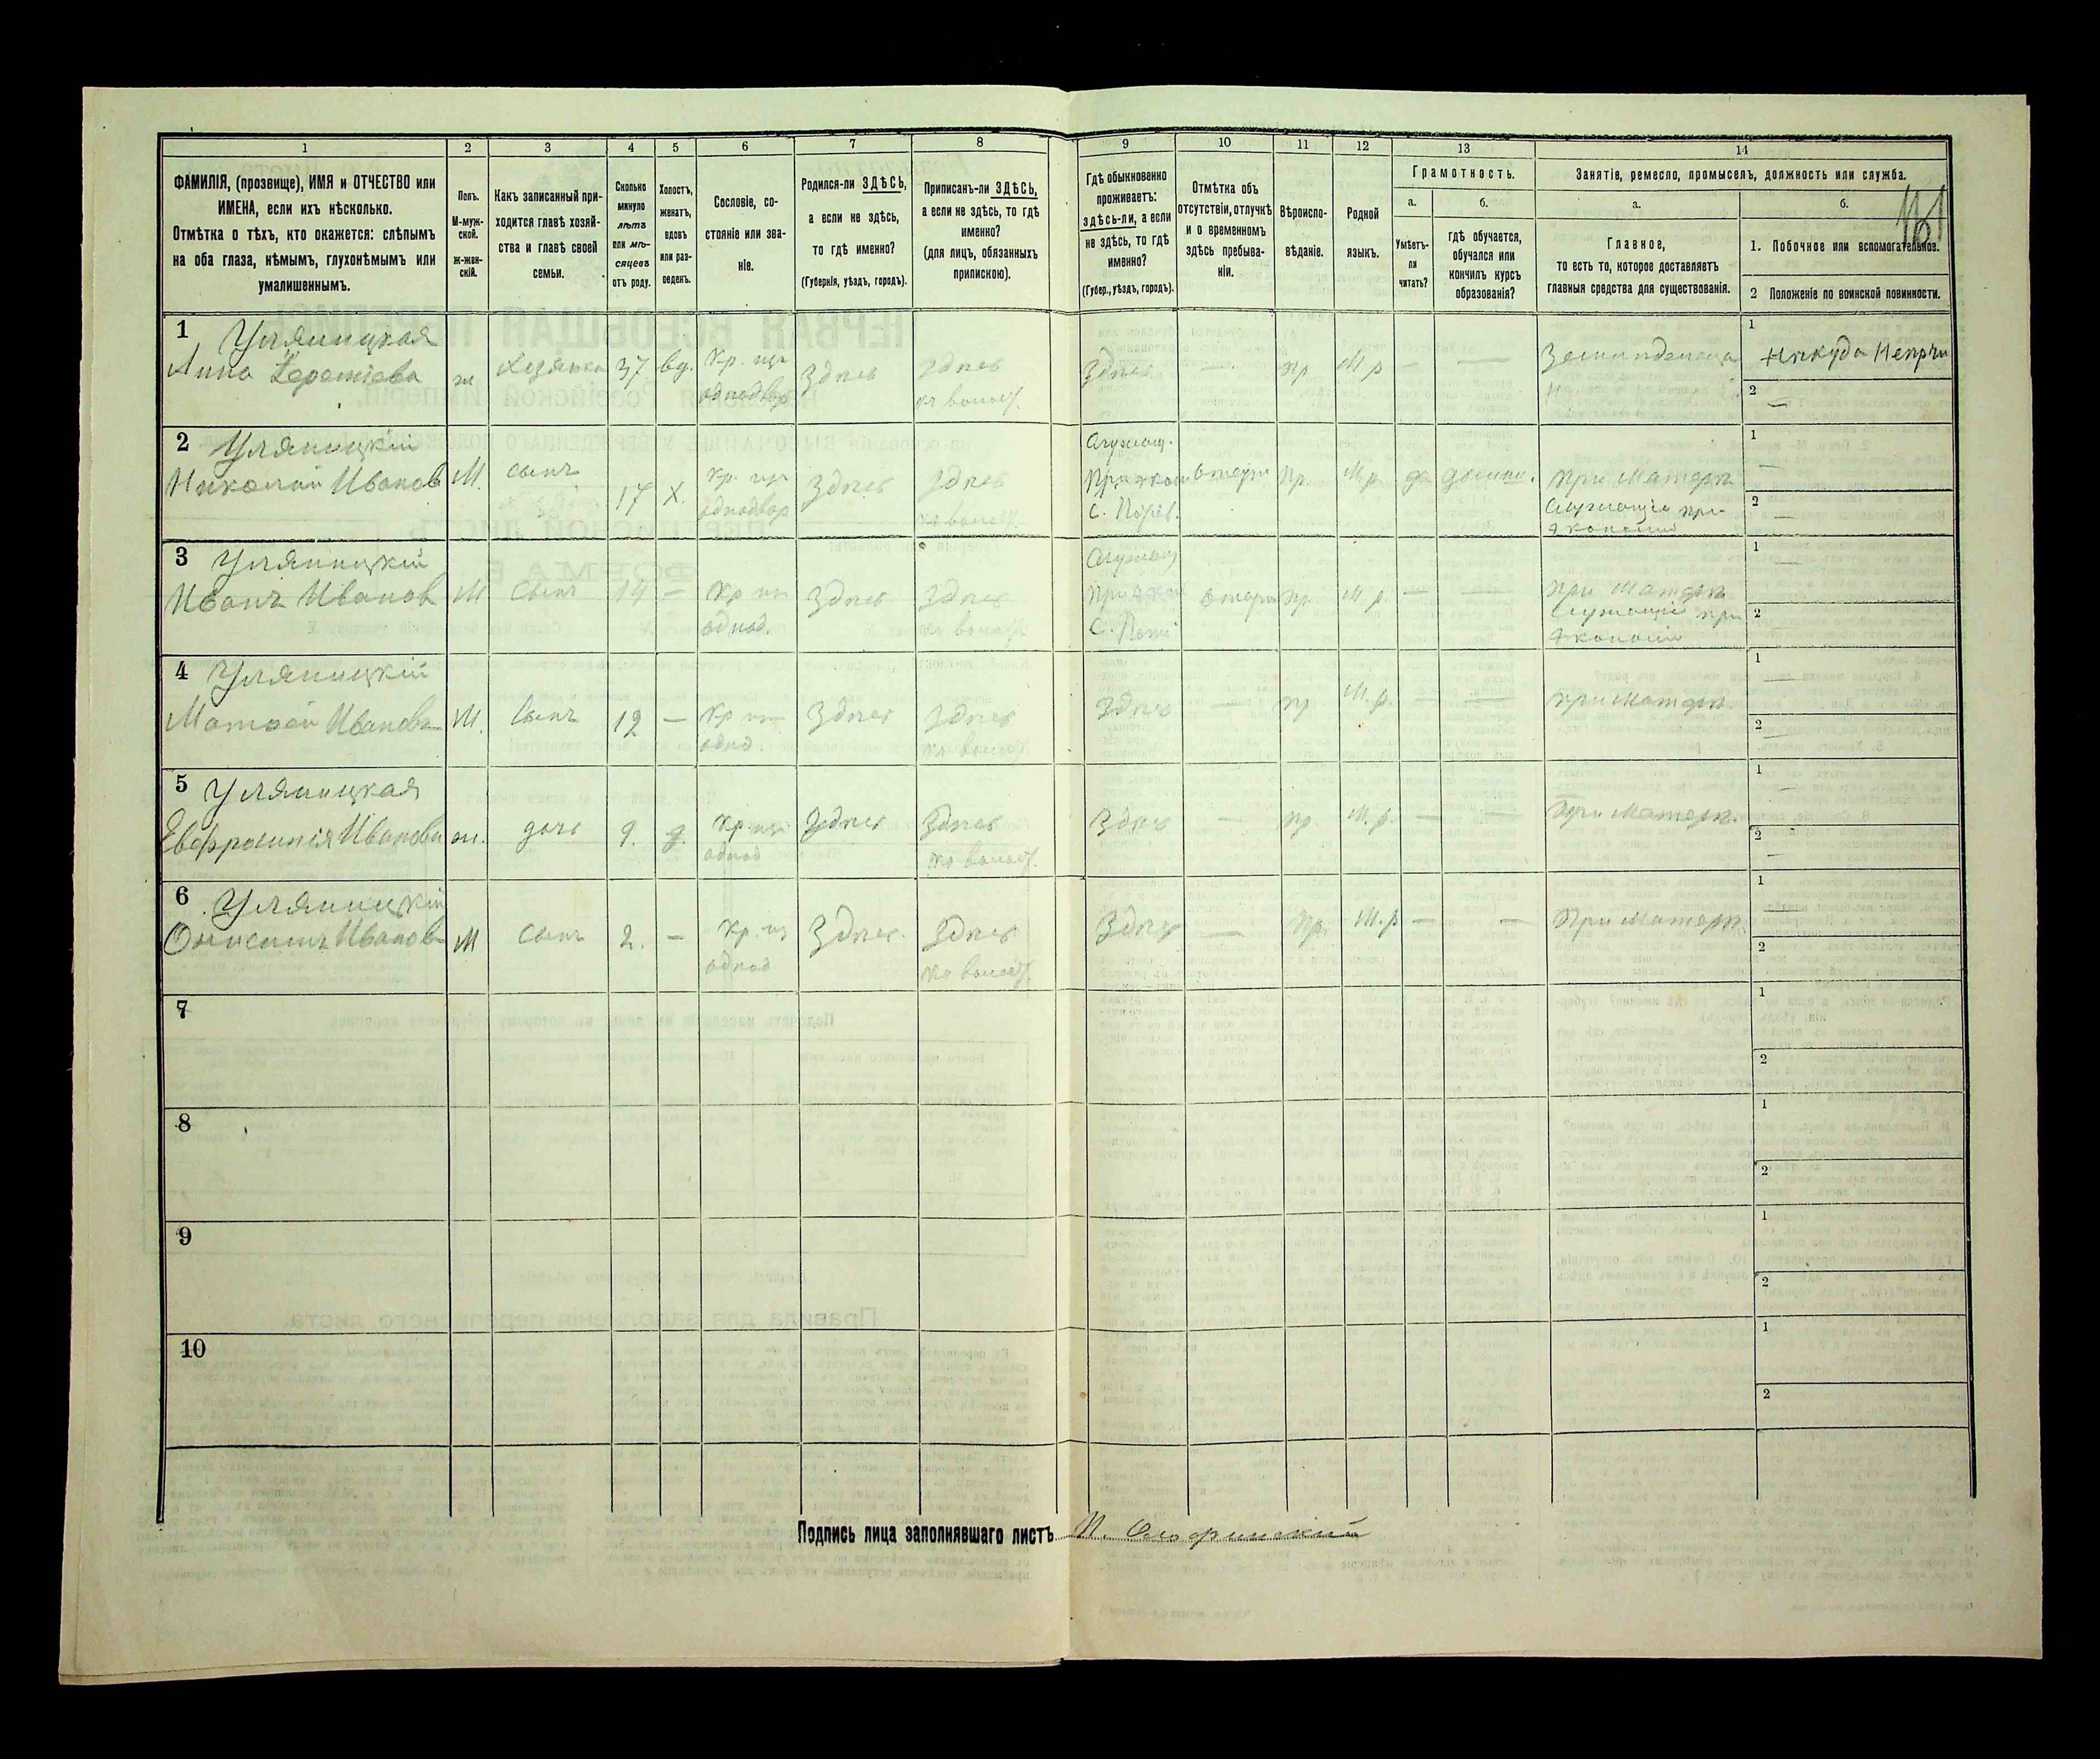 1
2
3
4
5
6
7
8
9
10
11
12
13
14
ФАМИЛІЯ, (прозвище), ИМЯ и ОТЧЕСТВО или
ИМЕНА, если ихъ нѣсколько.
Отмѣтка о тѣхъ, кто окажется: слѣпымъ
на оба глаза, нѣмымъ, глухонѣмымъ или
умалишеннымъ.
Полъ.
М-муж-
ской.
ж-жен-
скій.
Какъ записанный при-
ходится главѣ хозяй-
ства и главѣ своей
семьи.
Сколько
минуло
лѣтъ
или мѣ-
сяцевъ
отъ роду.
Холостъ,
женатъ,
вдовъ
или раз-
веденъ.
Сословіе, со-
стояніе или зва-
ніе.
Родился-ли ЗДѢСЬ,
а если не здѣсь,
то гдѣ именно?
(Губернія, уѣздъ, городъ).
Приписанъ-ли ЗДѢСЬ,
а если не здѣсь, то гдѣ
именно?
(для лицъ, обязанныхъ
припискою).
Гдѣ обыкновенно
проживаетъ:
здѣсь-ли, а если
не здѣсь, то гдѣ
именно?
(Губер., уѣздъ, городъ).
Отмѣтка объ
отсутствіи, отлучкѣ
и о временномъ
здѣсь пребыва-
ніи.
Вѣроиспо-
вѣданіе.
Родной
языкъ.
Грамотность.
а.
Умѣетъ-
ли
читать?
б.
гдѣ обучается,
обучался или
кончилъ курсъ
образованія?
Занятіе, ремесло, промыселъ, должность или служба.
а.
Главное,
то есть то, которое доставляетъ
главныя средства для существованія.
б.
1. Побочное или вспомогательное.
2 Положеніе по воинской повинности.
1 Уляницкая
Анна
ж
Хозяйка
37
вд.
Кр. изъ
однодвор
здѣсь
здѣсь
здѣсь
—
пр
М р
—
—
1
2
—
2 Уляницкій
Николай Иванов
М.
сынъ
17
х.
Кр. изъ
однодвор
здѣсь
здѣсь
С.
пр.
М.р.
да
при матери
Служащій при
1
—
2
—
3 Уляницкій
Иванъ Иванов
М
Сынъ
14
—
Кр изъ
однод.
здѣсь
здѣсь
С.
пр.
М.р.
—
—
при матери
Служащій при
1
—
2
4 Уляницкій
Иванов
М.
Сынъ
12
—
Кр изъ
однод
здѣсь
здѣсь
здѣсь
—
пр
М.р.
—
—
при матери
1
—
2
—
5 Уляницкая
Евфросинія Иванова
ж.
дочь
9.
д.
Кр. изъ
однод
здѣсь
здѣсь
здѣсь
—
пр.
М.р.
—
—
при матери
1
—
2
—
6 Уляницкій
Онисимъ Иванов
М
сынъ
2.
—
Кр. изъ
однод
здѣсь
здѣсь
здѣсь
—
пр.
М.р
—
—
при матери
1
—
2
7
1
2
8
1
2
9
1
2
10
1
2
Подпись лица заполнявшаго листъ